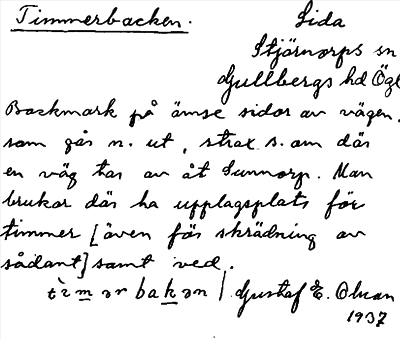 Timmerbacken. Sida
Stjärnorps sn
Gullbergs hd Ögl
Backmark på ämse sidor av vägen,
som går n. ut, strax s. om där
en väg tar av åt Sunnorp. Man
brukar där ha upplagsplats för
timmer [även för skrädning av
sådant] samt ved.
tìmər bakən / Gustaf E. Olson
1937